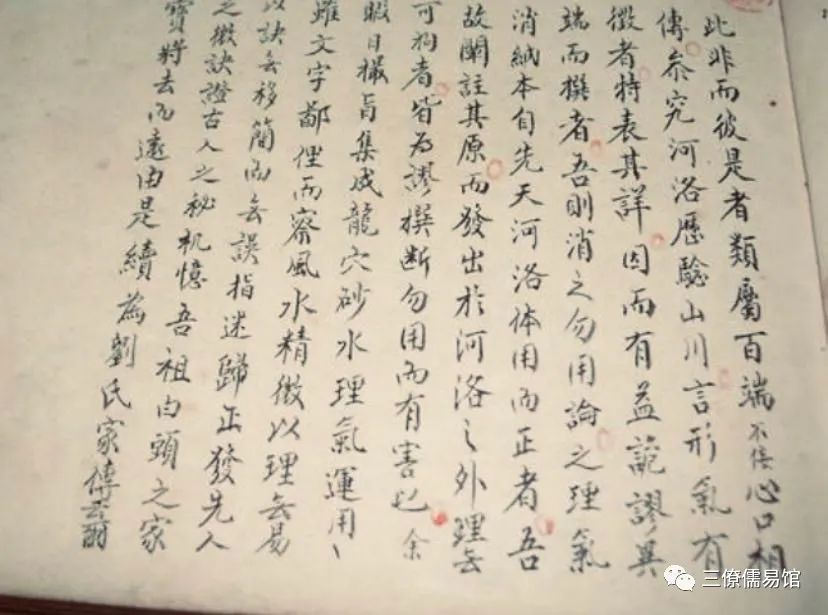 此非而彼是者類屬百端不佞心口相
傳參究河洛歷驗山川言形氣有
徵者特表其詳因而有益詭謬異
端而撰者吾則消之勿用論之理氣
消納本自先天河洛体用而正者吾
故闡註其原而發出於河洛之外理無
可狥者皆為謬撰断勿用而有害也余
暇日撮旨集成龍穴砂水理氣運用丶
雖文字鄙俚而察風水精微以理無易
以訣無移簡而無誤指迷歸正發先人
之微訣證古人之秘机憶吾祖白頭之家
寶將去而遠由是續為劉氏家傳云爾
三僚儒易馆